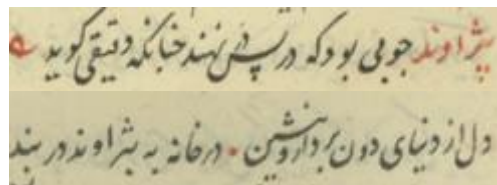 پژاوند جوبی بود که در پس در نهند چنانکه دقیقی کوید
دل از دنیای دون بردار و بنشین • در خانه به پژاوند در بند